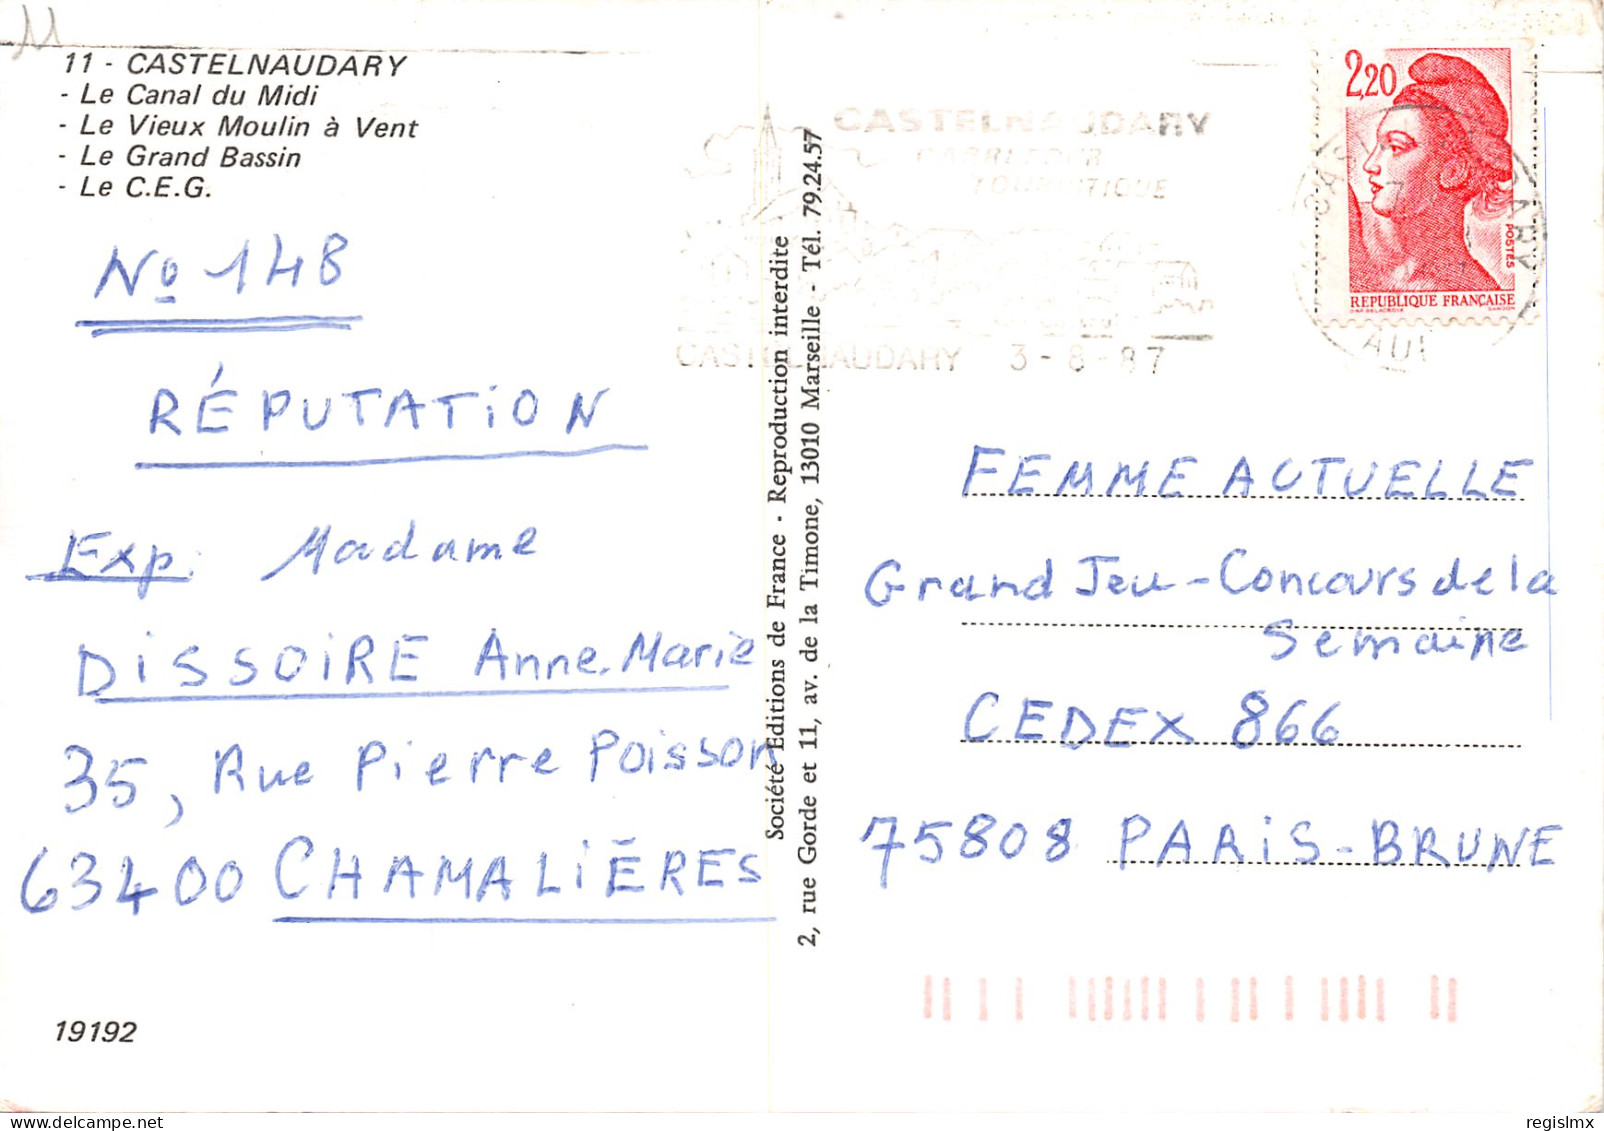 11 - CASTELNAUDARY
- Le Canal du Midi
- Le Vieux Moulin à Vent
- Le Grand Bassin
- Le C.E.G.
No 148
RÉPUTATION
Exp. Madame
DISSOIRE Anne.Marie
35, Rue Pierre Poisson
63400 CHAMALIÈRES
19192
Société Editions de France - Reproduction interdite
2, rue Gorde et 11, av. de la Timone, 13010 Marseille - Tél. 79.24.57
CASTELNAUDARY
CARREFOUR
TOURISTIQUE
CASTELNAUDARY 3-8-87
2,20
POSTES
REPUBLIQUE FRANÇAISE
FEMME ACTUELLE
Grand Jeu-Concours de la
Semaine
CEDEX 866
75808 PARIS-BRUNE
regislmx